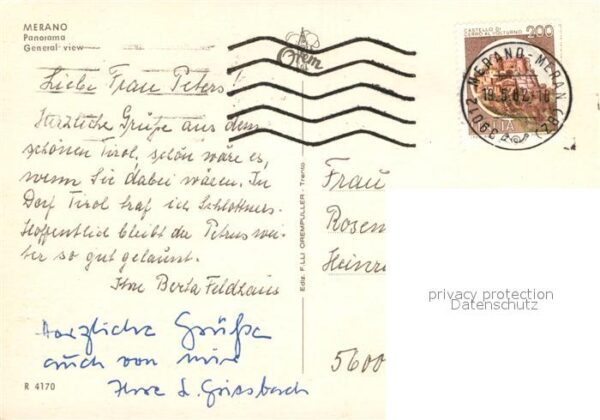 MERANO
Panorama
General view
Orem
CASTELLO DI
CERRO AL VOLTURNO 200
MERANO-MERAN
(BZ)
39012
ITALIA
Liebe Frau Peters!
Herzliche Grüße aus dem
schönen Tirol, schön wäre es,
wenn Sie dabei wären. In
Dorf Tirol traf ich Schlottners.
Hoffentlich bleibt der Petrus wei-
ter so gut gelaunt.
Ihre Berta Feldhaus
Herzliche Grüße
auch von mir
Ihre L. Griesbach
R 4170
Ediz. F.LLI OREMPULLER - Trento
Frau
Rosem
Heinr
5600
privacy protection
Datenschutz